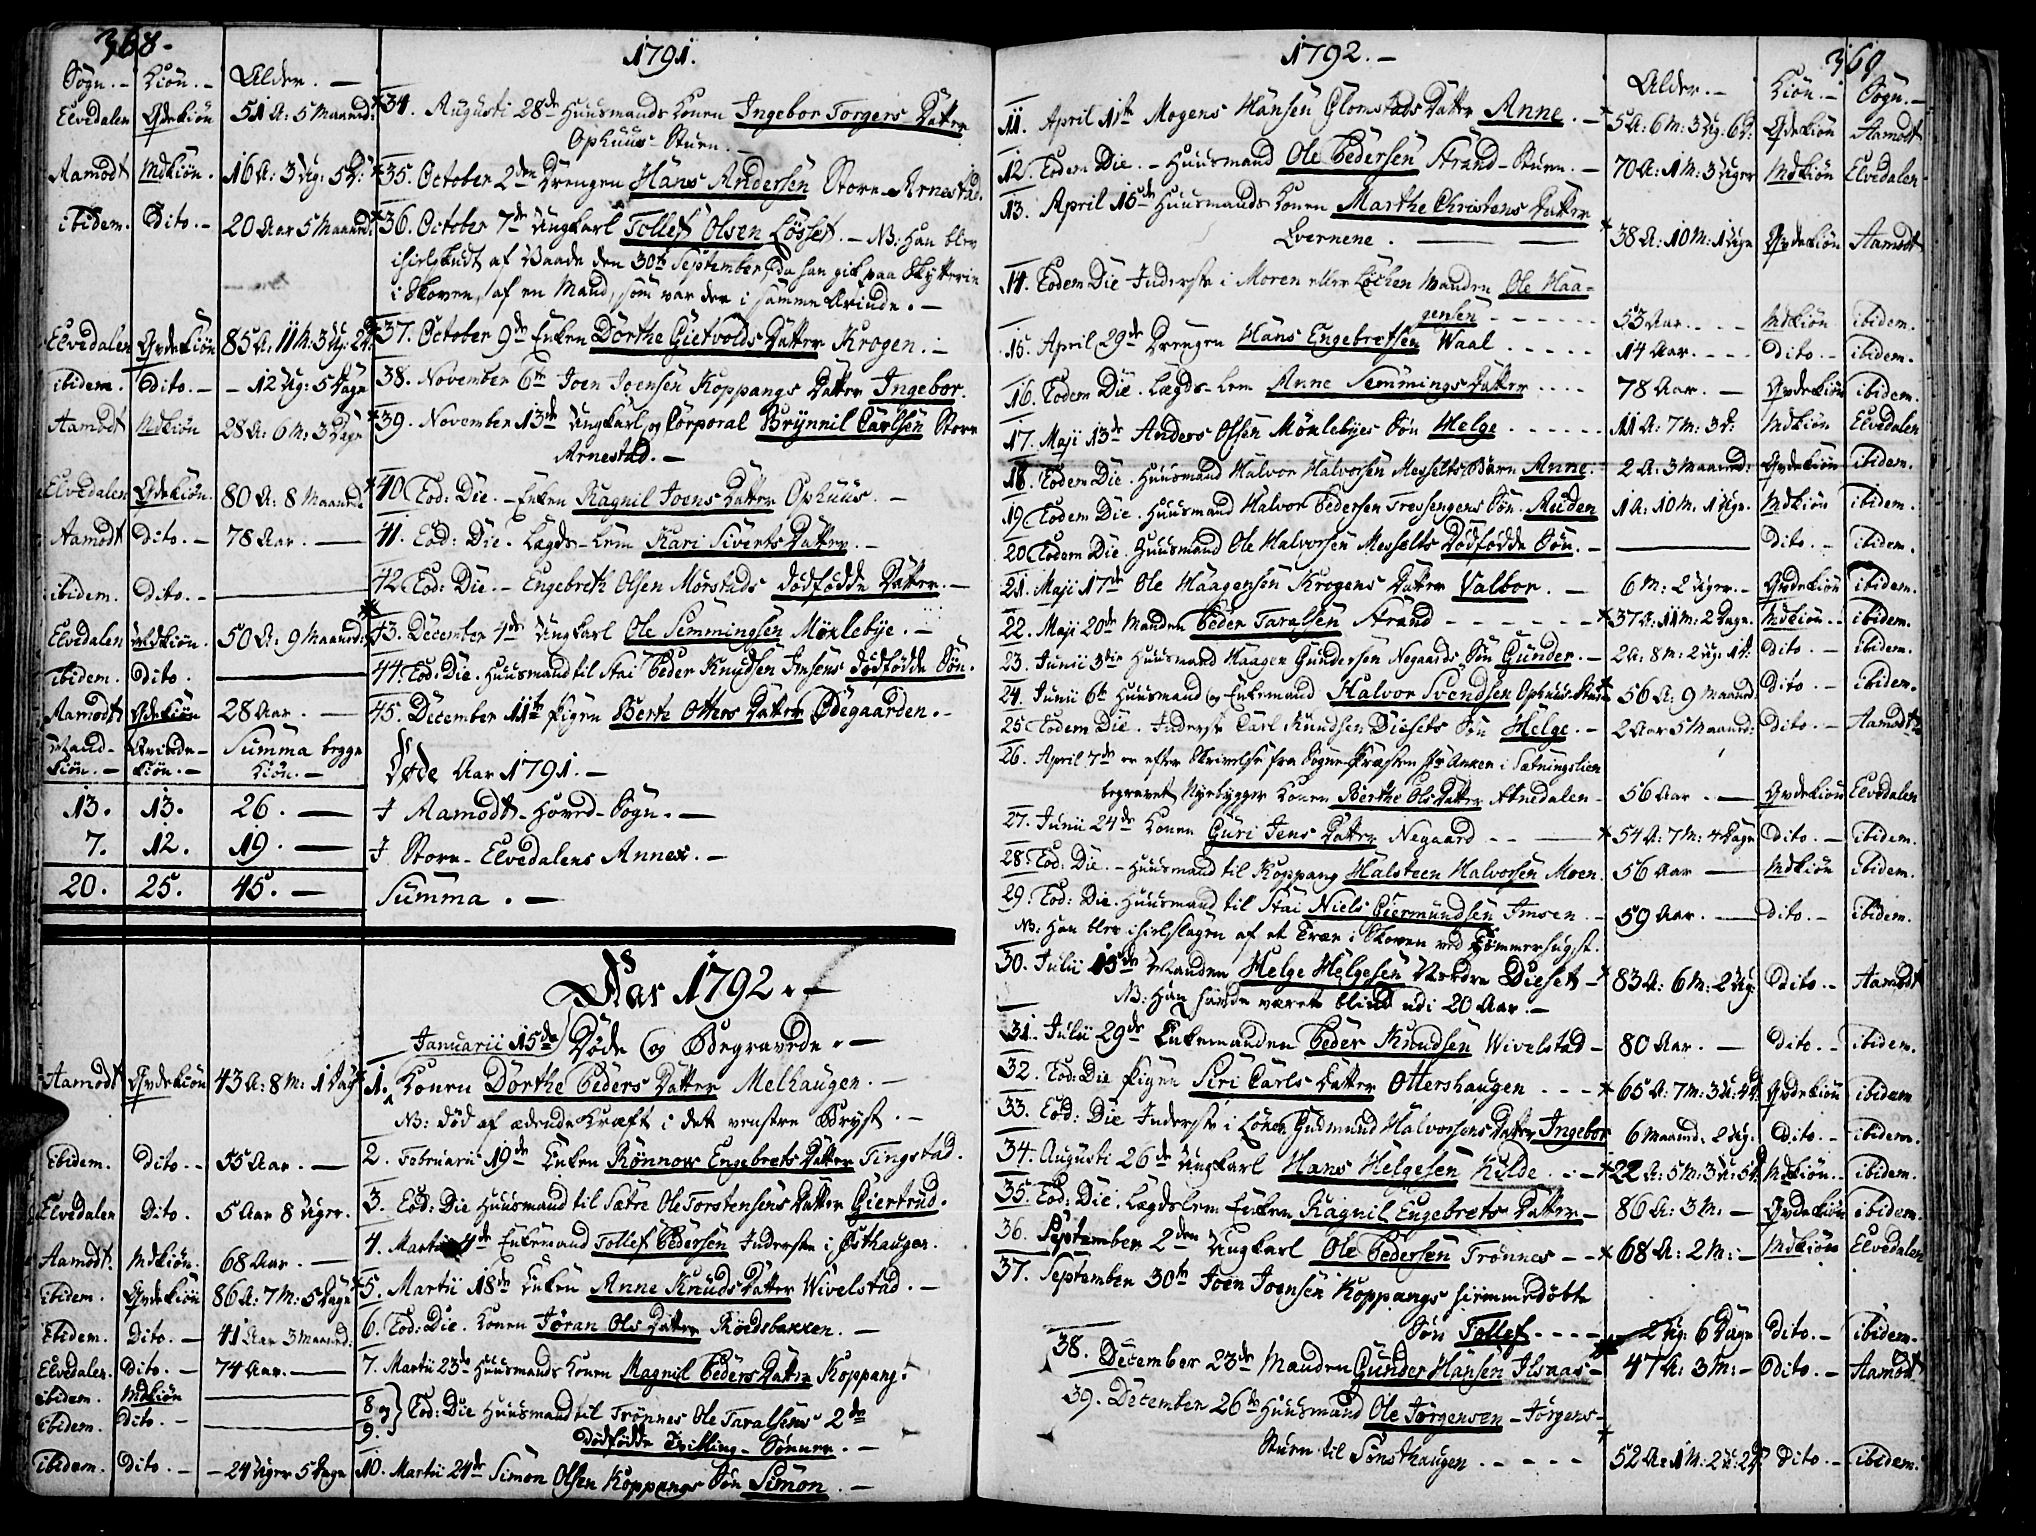 368.-
1791.
Sogn.- Kiön.- Alder.-
Elvedalen Qvdekiön 51 A: 5 Maaned: *34. Augusti 28de Huusmands Konen Ingebor Torgers Datter
Ophuus-Stuen.-
Aamodt Mdkiön. 16 A: 3 Ug: 5 D: *35. October 2den Drengen Hans Andersen Store-Arnestad.
ibidem. Dito.- 20 Aar 5 Maaned: *36. October 7de Ungkarl Tollef Olsen Lösset.- NB: Han blev
ihielskudt af Vaade den 30te September, da han gik paa Skytterie
i Skoven, af en Mand, som var der i samme Ærinde.-
Elvedalen Qvdekiön 85 A: 11 M: 3 Ug: 2 D: *37. October 9de Enken Dorthe Gietvolds Datter Krogen.-
ibidem. Dito.- - 12 Ug: 5 Dage 38. November 6te Joen Joensen Koppangs Datter Ingebor.
Aamodt Mdkiön 28 A: 6 M: 3 Dage *39. November 13de Ungkarl og Corporal Brynnil Carlsen Store
Arnestad.-
Elvedalen Qvdekiön. 80 A: 8 Maaned: *40. Eod: Die.- Enken Ragnil Joens Datter Ophuus.-
Aamodt Dito.- 78 Aar.- 41. Eod: Die. Lægds-Lem Kari Siverts Datter.-
ibidem. Dito.- 42. Eod: Die.- Engebreth Olsen Mörstads dödfödde Datter.-
Elvedalen Mdkiön. 50 A: 9 Maaned: *43. December 4de Ungkarl Ole Semmingsen Möklebye.-
ibidem. Dito. 44. Eod: Die. Huusmand til Stai Peder Knudsen Imsens dödfödde Sön.
Aamodt Qvdekiön 28 Aar.- 45. December 11te Pigen Berte Otters Datter Ödegaarden.-
Mand-kiön.- Qvinde-kiön.- Summa begge Kiön.-
Döde Aar 1791.-
13. 13. 26.- I Aamodt-Hoved-Sogn.-
7. 12. 19.- I Store-Elvedalens Annex.-
20. 25. 45.- Summa.-
Aar 1792.-
Döde og Begravede.-
Januarii 15de
Aamodt Qvdekiön 43 A: 8 M: 1 Dag 1. Konen Dorthe Peders Datter Melhaugen.-
NB: död af ædende Kræft i det venstre Bryst.-
ibidem. Dito.- 55 Aar.- 2. Februarii 19de Enken Rönnow Engebrets Datter Tingstad.
Elvedalen Dito. 5 Aar 8 Uger. 3. Eod: Die Huusmand til Sætre Ole Torstensens Datter Giertrud.
Aamodt. Mdkiön. 68 Aar.- 4. Martii 4de Enkemand Tollef Pedersen Inderste i Östhaugen.
ibidem. Qvdekiön 86 A: 7 M: 5 Dage *5. Martii 18de Enken Anne Knuds Datter Wivelstad.-
ibidem. Dito.- 41 Aar 3 Maaned: 6. Eod: Die. Konen Jöran Ols Datter Röedsbakken.-
Elvedalen. Dito.- 74 Aar.- 7. Martii 23de Huusmands Konen Magnil Peders Datter Koppang.
ibidem. Mdkiön 8 og
ibidem. Dito.- 9. Eod: Die Huusmand til Trönnes Ole Taralsens 2de
dödfödde Tvilling-Sönner.-
ibidem. Dito.- - 24 Uger 5 Dage 10. Martii 24de Simon Olsen Koppangs Sön Simon.-
1792.-
369
Alder.- Kiön.- Sogn.-
11. April 11te Mogens Hansen Glomstads Datter Anne.- *5 A: 6 M: 3 Ug: 6 D. Qvdekiön Aamodt
12. Eodem Die.- Huusmand Ole Pedersen Strand-Stuen.- 70 A: 1 M: 3 Uger Mdkiön Elvedalen
13. April 15de Huusmands Konen Marthe Christens Datter
Evernene. *38 A: 10 M: 1 Uge Qvdekiön Aamodt
14. Eodem Die Inderste i Moren eller Löchen Manden Ole Haa-
gensen - - - 53 Aar. - - Mdkiön ibidem.
15. April 29de Drengen Hans Engebretsen Waal - - - 14 Aar. - - Dito.- ibidem.
16. Eodem Die. Lægds-Lem Anne Semmings Datter - - - 78 Aar.- Qvdekiön ibidem.
17. Maji 13de Anders Olsen Möklebyes Sön Helge - - - 11 A: 7 M: 3 D: Mdkiön Elvedalen
18. Eodem Die. Huusmand Halvor Halvorsen Messelts Barn Anne. 2 A: 3 Maaned: Qvdekiön ibidem.
19. Eodem Die. Huusmand Halvor Pedersen Tresengens Sön. Auden 1 A: 10 M: 1 Uge. Mdkiön ibidem.
20. Eodem Die. Huusmand Ole Halvorsen Messelts Dödfödde Sön. Dito.- ibidem.
21. Maji 17de Ole Haagensen Krogens Datter Valbor.- 6 M: 2 Uger.- Qvdekiön ibidem.
22. Maji 20de Manden Peder Taralsen Strand - - - *37 A: 11 M: 2 Dage. Mdkiön.- ibidem.
23. Junii 3die Huusmand Haagen Gundersen Negaards Sön Gunder.- 2 A: 8 M: 2 Ug: 1 D: Dito.- ibidem.
24. Junii 6te Huusmand og Enkemand Halvor Svendsen Ophuus-Stuen *56 A: 9 Maaned: Dito.- ibidem.
25. Eodem Die. Inderste Carl Knudsen Diesets Sön Helge.- 2 Aar 5 Maaned: Dito.- Aamodt
26. April 7de er efter Skrivelse fra Sogne-Præsten Hr Anker i Sætningslien
begravet Nyebygger Konen Berthe Ols Datter Atnedalen- 56 Aar.- Qvdekiön Elvedalen
27. Junii 24de Konen Guri Jens Datter Negaard - - *54 A: 7 M: 4 Dage Dito.- ibidem.
28. Eod: Die.- Huusmand til Koppang Halsteen Halvorsen Moen. 56 Aar Mdkiön ibidem.
29. Eod: Die. Huusmand til Stai Niels Giermundsen Imsen.- 59 Aar.- Dito.- ibidem.
NB: Han blev ihielslagen af et Træe i Skoven ved Tömmerhugst.
30. Julii 15de Manden Helge Helgesen Nordre Dieset- *83 A: 6 M: 2 Ug: Dito.- Aamodt
NB: Han havde været blind udi 20 Aar.-
31. Julii 29de Enkemanden Peder Knudsen Wivelstad- 80 Aar.- Dito.- ibidem.
32. Eod: Die Pigen Siri Carls Datter Ottershaugen - - - *65 A: 7 M: 3 U: 4 D: Qvdekiön ibidem
33. Eod: Die Inderste i Löken Gudmund Halvorsens Datter Ingebor 6 Maaned: 2 Ug. Dito.- ibidem.
34. Augusti 26de Ungkarl Hans Helgesen Kilde. - - *22 A: 5 M: 3 U: 5 D: Mdkiön.- ibidem.
35. Eod: Die. Lægdslem Enken Ragnil Engebrets Datter- 86 A: 3 M: - Qvdekiön ibidem.
36. September 2den Ungkarl Ole Pedersen Trönnes - - *68 A: 2 M: - Mdkiön Elvedalen
37. September 30te Joen Joensen Koppangs hiemmedöbte
Sön Tollef - - - - 2 Ug. 6 Dage Dito.- ibidem.-
38. December 23de Manden Gunder Hansen Ilsaas- *47 A: 3 M: - Dito.- Aamodt
39. December 26de Huusmand Ole Jörgensen - Jörgens-
Stuen til Sönsthaugen - - - - *52 A: 1 M: 2 U: 2 D: Dito.- ibidem.